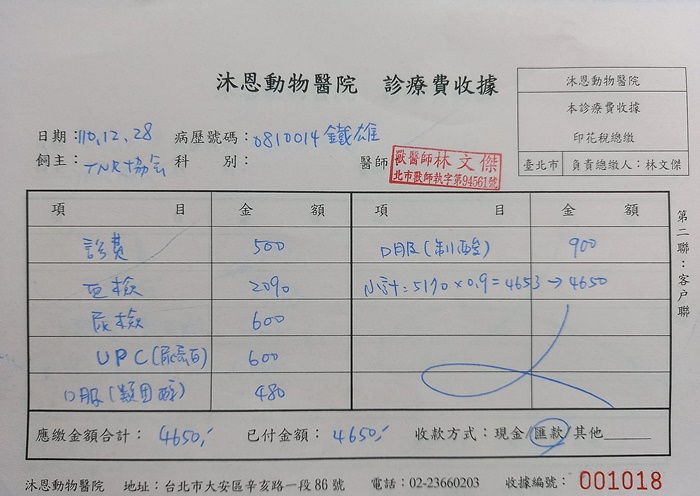 沐恩動物醫院 診療費收據
沐恩動物醫院
本診療費收據
印花稅總繳
臺北市 負責總繳人：林文傑
日期：110.12.28 病歷號碼：0810014 鐵雄
飼主：TNR協會 科 別： 醫師
獸醫師林文傑
北市獸師執字第94561號
項 目 金 額 項 目 金 額
診費 500 口服(制酸) 900
血檢 2090 小計：5170×0.9=4653→4650
尿檢 600
UPC(尿蛋白) 600
口服(類固醇) 480
應繳金額合計：4650,- 已付金額：4650,- 收款方式：現金/匯款/其他
第二聯：客戶聯
沐恩動物醫院 地址：台北市大安區辛亥路一段86號 電話：02-23660203 收據編號：001018